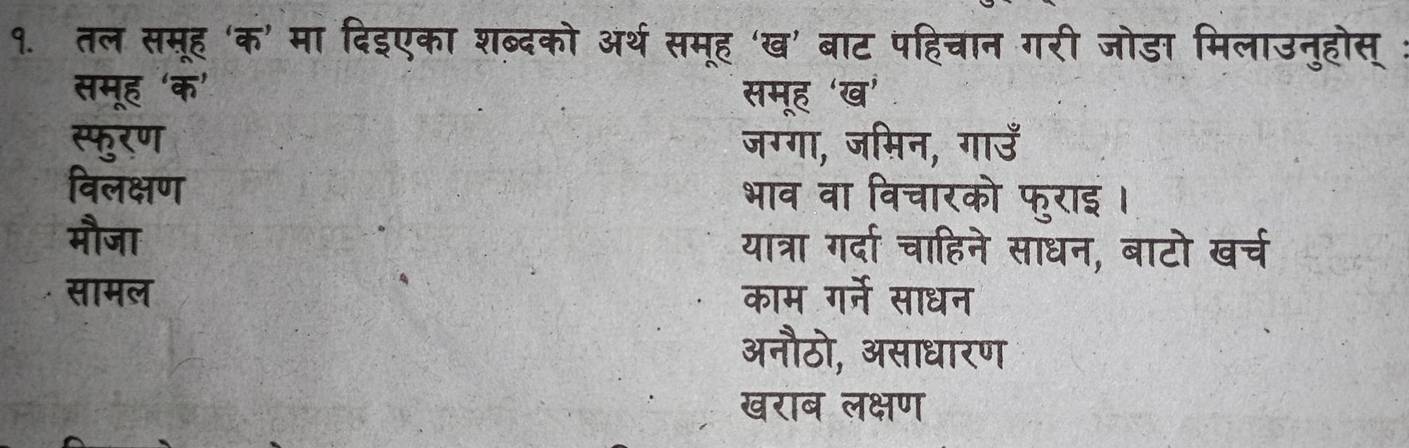 १. तल समूह ‘क’ मा दिइएका शब्दको अर्थ समूह ‘ख’ बाट पहिचान गरी जोडा मिलाउनुहोस् :
समूह ‘क’ समूह ‘ख’
स्फुरण जग्गा, जमिन, गाउँ
विलक्षण भाव वा विचारको फुराइ ।
मौजा यात्रा गर्दा चाहिने साधन, बाटो खर्च
सामल काम गर्ने साधन
अनौठो, असाधारण
खराब लक्षण